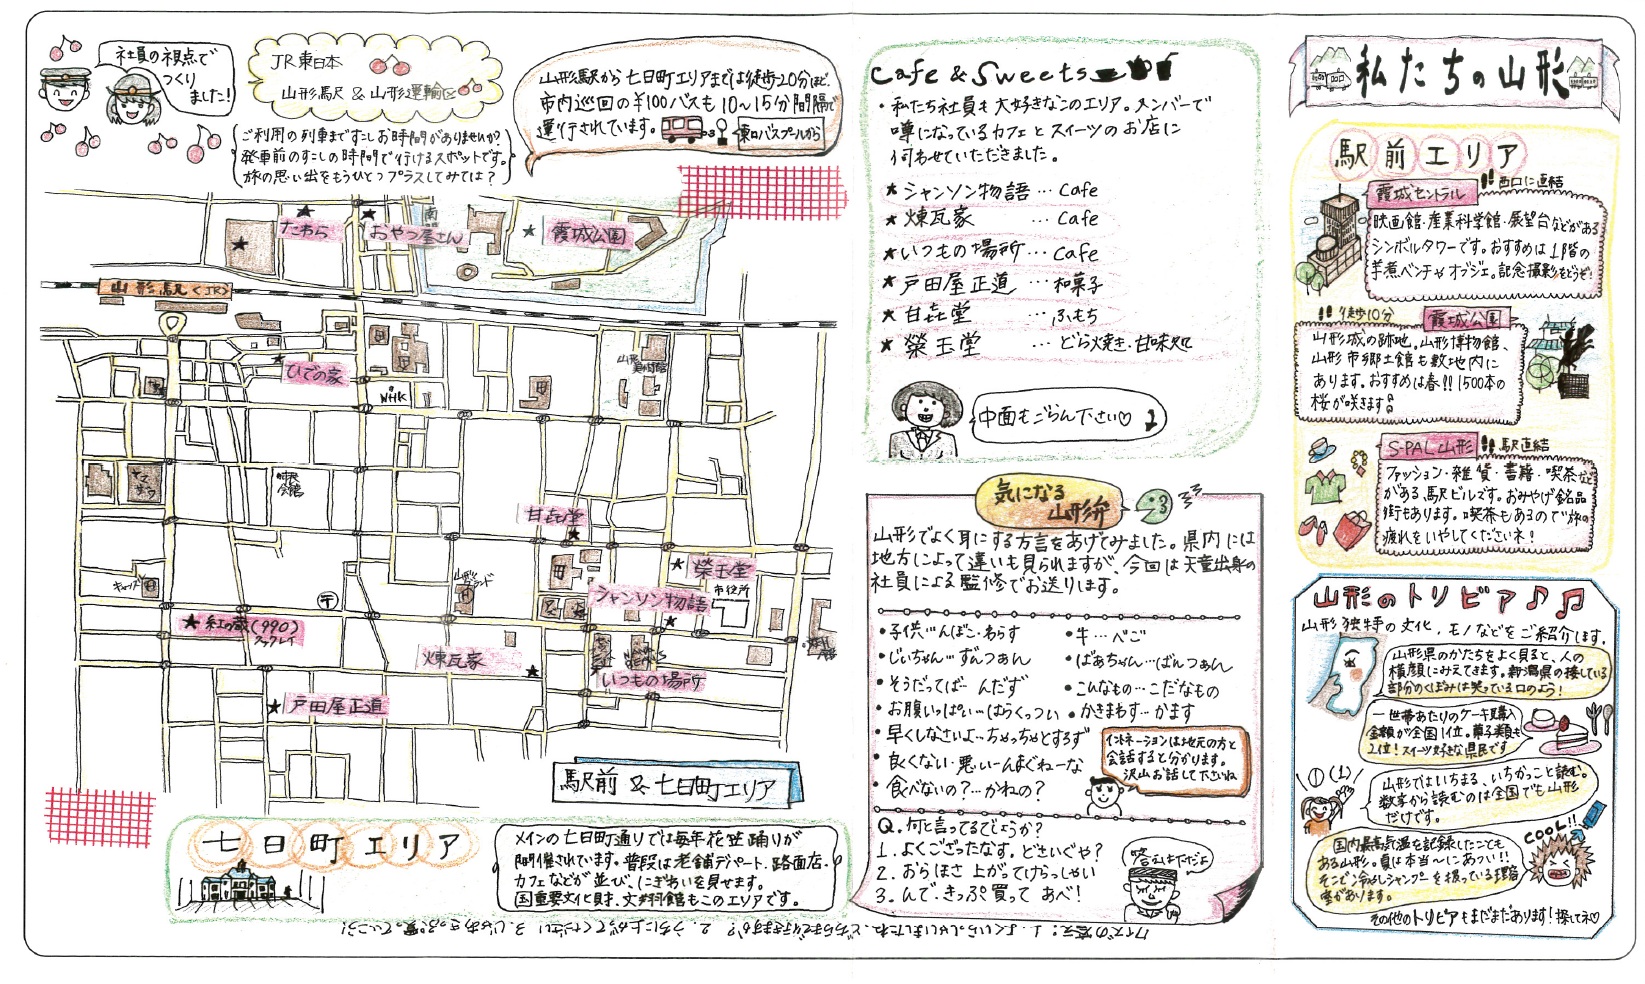 社員の視点で
つくり
ました!
JR東日本
山形駅 & 山形運輸区
ご利用の列車まですこしお時間がありませんか?
発車前のすこしの時間で行けるスポットです。
旅の思い出をもうひとつプラスしてみては?
山形駅から七日町エリアまでは徒歩20分ほど。
市内巡回の¥100バスも10〜15分間隔で
運行されています。
東口バスプールから
たわら
おやつ屋さん
霞城公園
山形駅(JR)
ひでの家
NHK
山形
美術館
甘㐂堂
榮玉堂
市役所
シャンソン物語
紅の蔵(990)
煉瓦家
NANA
BEANS
いつもの場所
戸田屋正道
駅前 & 七日町エリア
七日町エリア
メインの七日町通りでは毎年花笠踊りが
開催されています。普段は老舗デパート、路面店、
カフェなどが並び、にぎわいを見せます。
国重要文化財、文翔館もこのエリアです。
Cafe & Sweets
・私たち社員も大好きなこのエリア。メンバーで
噂になっているカフェとスイーツのお店に
伺わせていただきました。
★シャンソン物語…Cafe
★煉瓦家…Cafe
★いつもの場所…Cafe
★戸田屋正道…和菓子
★甘㐂堂…ふもち
★榮玉堂…どら焼き・甘味処
中面もごらん下さい♡
気になる
山形弁
山形でよく耳にする方言をあげてみました。県内には
地方によって違いも見られますが、今回は天童出身の
社員による監修でお送りします。
・子供…んぼこ・わらす
・牛…べご
・じいちゃん…ずんつぁん
・ばあちゃん…ばんつぁん
・そうだってば…んだず
・こんなもの…こだなもの
・お腹いっぱい…はらくっつい
・かきまわす…かます
・早くしなさいよ…ちゃっちゃとすろず
・良くない・悪い…んまぐねーな
・食べないの?…かねの?
イントネーションは地元の方と
会話すると分かります。
沢山お話して下さいね
Q.何と言ってるでしょうか?
1. よくござったなす。どさいぐや?
2. おらほさ上がってけらっしゃい
3. んで、きっぷ買ってあべ!
答えは下だよ
クイズの答え:1. よくいらっしゃいましたね、どちらまで行きますか? 2. うちに上がってください 3. じゃあきっぷ買って行こう!
私たちの山形
駅前エリア
霞城セントラル
西口に直結
映画館・産業科学館・展望台などがある
シンボルタワーです。おすすめは1階の
芋煮ベンチやオブジェ。記念撮影をどうぞ!
徒歩10分
霞城公園
山形城の跡地。山形博物館、
山形市郷土館も敷地内に
あります。おすすめは春!!1500本の
桜が咲きます
S-PAL山形
駅直結
ファッション・雑貨・書籍・喫茶など
がある駅ビルです。おみやげ銘品
街もあります。喫茶もあるので旅の
疲れをいやしてくださいネ!
山形のトリビア♪♫
山形独特の文化、モノなどをご紹介します。
山形県のかたちをよく見ると、人の
横顔にみえてきます。新潟県の接している
部分のくぼみは笑っている口のよう!
一世帯あたりのケーキ購入
金額が全国1位。菓子類も
2位!スイーツ好きな県民です
①(1)
山形ではいちまる、いちかっこと読む。
数字から読むのは全国でも山形
だけです。
COOL!!
国内最高気温を記録したことも
ある山形。夏は本当〜にあつい!!
そこで冷やしシャンプーを扱っている理容
室があります。
その他のトリビアもまだまだあります!探してネ♡